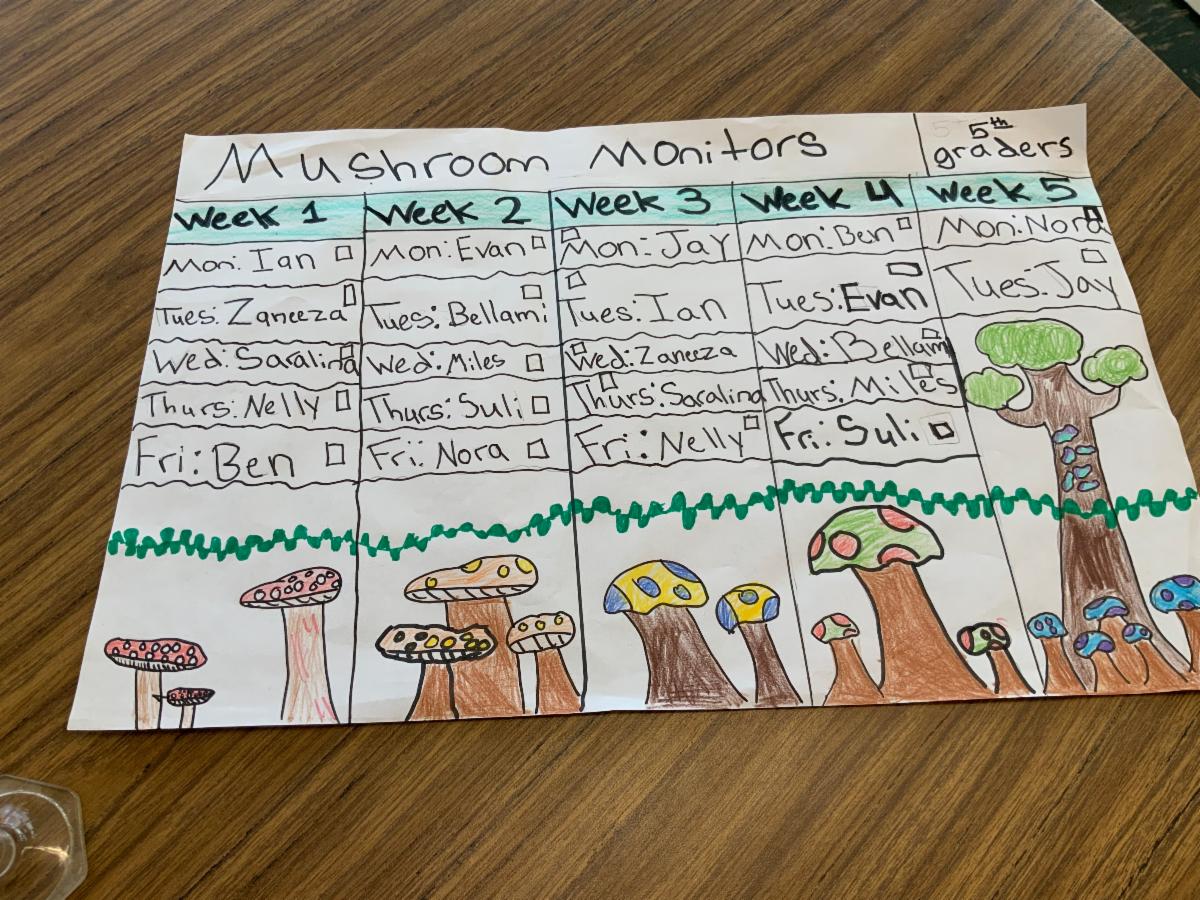 Mushroom Monitors
5th graders
Week 1
Mon: Ian
Tues: Zaneeza
Wed: Saralina
Thurs: Nelly
Fri: Ben
Week 2
Mon: Evan
Tues: Bellami
Wed: Miles
Thurs: Suli
Fri: Nora
Week 3
Mon: Jay
Tues: Ian
Wed: Zaneeza
Thurs: Saralina
Fri: Nelly
Week 4
Mon: Ben
Tues: Evan
Wed: Bellami
Thurs: Miles
Fri: Suli
Week 5
Mon: Nora
Tues: Jay